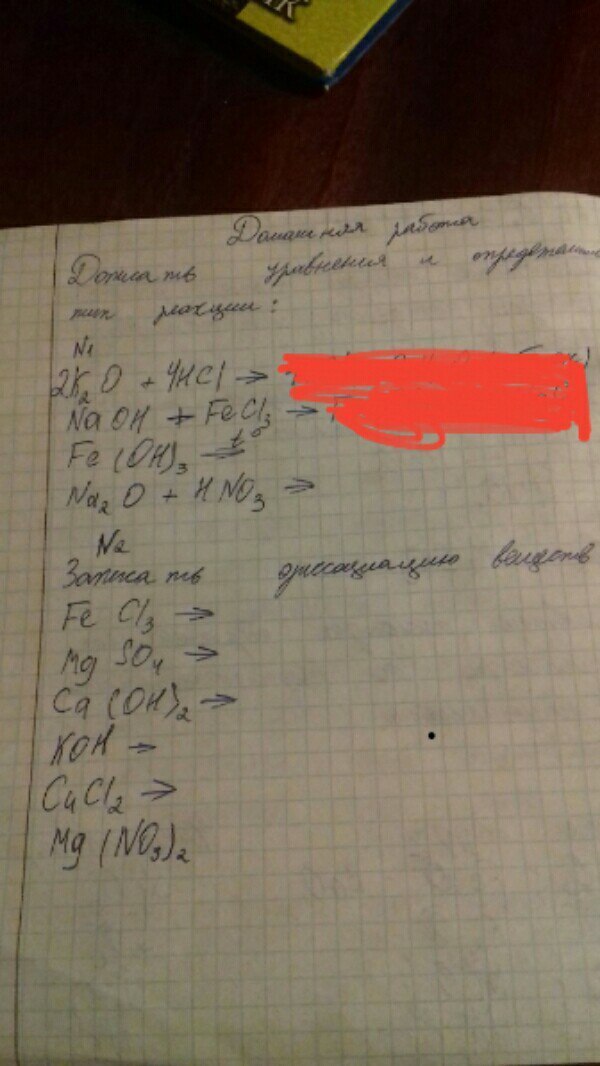 Домашняя работа
Дописать уравнения и определить
тип реакции:
N1
2K₂O + 4HCl →
NaOH + FeCl₃ →
Fe(OH)₃ t° →
Na₂O + HNO₃ →
N2
Записать диссоциацию веществ
FeCl₃ →
MgSO₄ →
Ca(OH)₂ →
KOH →
CuCl₂ →
Mg(NO₃)₂